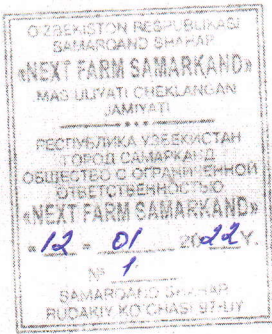 O'ZBEKISTON RESPUBLIKASI
SAMARQAND SHAHAR
«NEXT FARM SAMARKAND»
MAS'ULIYATI CHEKLANGAN
JAMIYATI
РЕСПУБЛИКА УЗБЕКИСТАН
ГОРОД САМАРКАНД
ОБЩЕСТВО С ОГРАНИЧЕННОЙ
ОТВЕТСТВЕННОСТЬЮ
«NEXT FARM SAMARKAND»
«12» 01 2022 Y.
№ 1
SAMARQAND SHAHAR
RUDAKIY KO'CHASI 97-UY